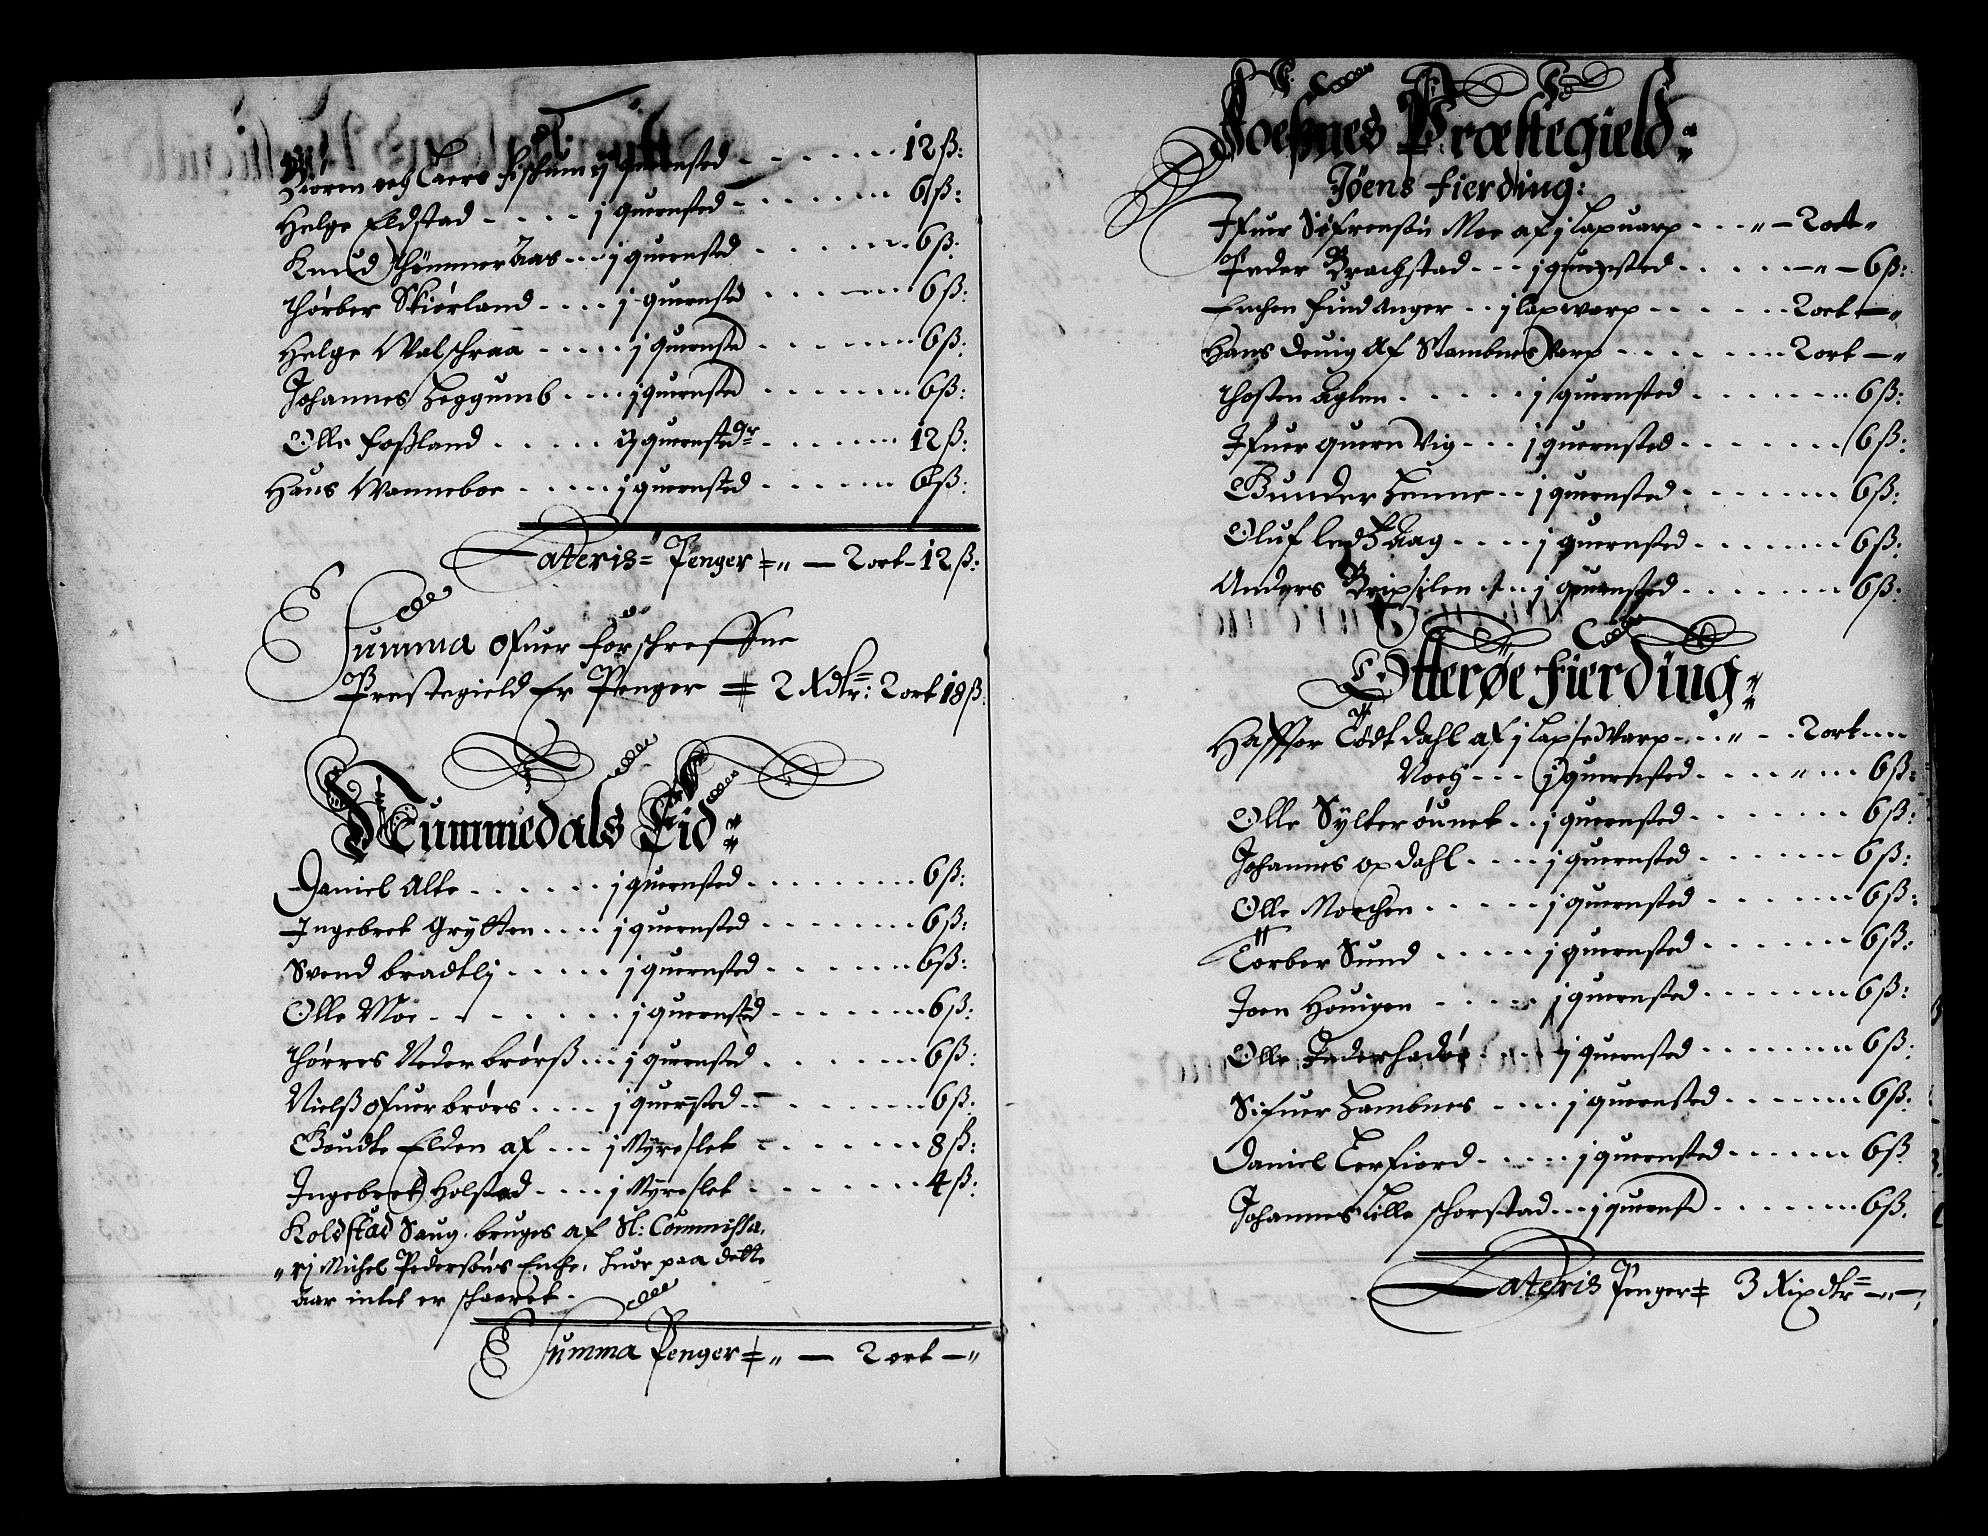 Bioren och Laers Fischum ij quernsted - - - 12 ß:
Helge Eldstad - - - - j quernsted - - - 6 ß:
Knud Thömmer Aas - - - j quernsted - - - 6 ß:
Thörber Skiørland - - - - j quernsted - - - 6 ß:
Helge Walschraa - - - - j quernste - - - 6 ß:
Johannes Leggumb - - - - j quernsted - - - 6 ß:
Olle Foßland - - - - ij quernstedr - - - 12 ß:
Hans Wanneboe - - - - j quernsted - - - 6 ß:
Lateris = Penger = „ — 2 ort - 12 ß:
Summa ofuer forschreffne
Prestegield Er Penger = 2 Rdlr: 2 ort 18 ß:
Nummedals Eid:
Daniel Alte - - - - j quernsted - - - 6 ß:
Ingebret Grytten - - - - j quernsted - - - 6 ß:
Svend bradtlj - - - - j quernsted - - - 6 ß:
Olle Moe - - - - j quernsted - - - 6 ß:
Thörres Neder brörß - - - j quernsted - - - 6 ß:
Nielß ofuer bröes - - - - j quernsted - - - 6 ß:
Goudte Elden af - - - j Myreslet - - - 8 ß:
Ingebret Holstad - - - - j Myreslet - - - 4 ß:
Koldstad Saug, bruges af Sl: Commissa,
„rj Michel Pedersöns Encke, huor paa dette
aar intet er schaaret.
Summa Penger = „ — 2 ort — „
Foeßnes Præstegield:
Jöens Fierding:
Ifuer Sifrensön Moe af j Laxuarp - - - „ - 2 ort „
Peder Brachstad - - - j quernsted - - - „ - 6 ß:
Enchen Findanger - - j laxwarp - - - 2 ort — „
Hans Deuig Af Stambnes Varp - - - 2 ort — „
Thosten Aglen - - - - j quernsted - - - 6 ß:
Ifuer quern Vig - - - j quernsted - - - 6 ß:
Gunder Lunne - - j quernsted - - - 6 ß:
Oluf Ledhaag - - - - j quernsted - - - 6 ß:
Anders - - j quernsted - - - 6 ß:
Otterøe Fierding:
Haffsor Tödt dahl af j Laxsewarp - - - „ - - 2 ort - - -
Noch - - - j quernsted - - - „ - - - 6 ß:
Olle Sylterøunet - - j quernsted - - - 6 ß:
Johannes opdahl - - - - j quernsted - - - 6 ß:
Olle Moechen - - - - j quernsted - - - 6 ß:
Törber Sund - - - - j quernsted - - - 6 ß:
Joen Houigen - - - - j quernsted - - - 6 ß:
Olle Federhadöe - - - - j quernsted - - - 6 ß:
Sifuer Lambnes - - - - j quernsted - - - 6 ß:
Daniel Lerfiord - - - - j quernsted - - - 6 ß
Johannes Lille schorstad - - - j quernste - - - 6 ß.
Lateris Penger = 3 Rixdlr — „ —